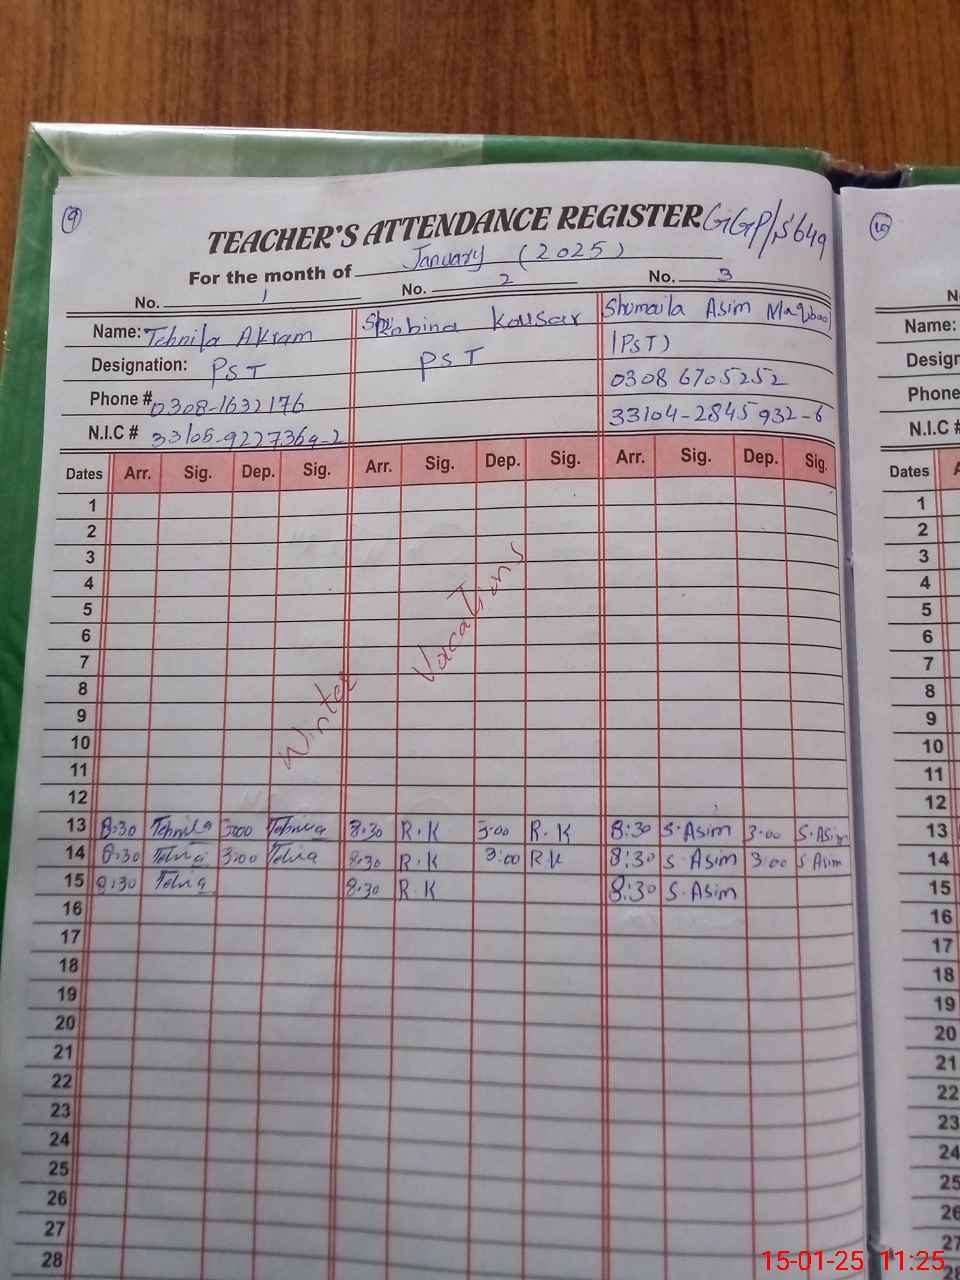 9
TEACHER'S ATTENDANCE REGISTER GGP/S 649
For the month of January (2025)
No. 1 No. 2 No. 3
Name: Tehnila Akram Robina Kousar Shumaila Asim Maqbool
Designation: PST PST (PST)
Phone # 0308-1632176 0308 6705252
N.I.C # 33105-9227369-2 33104-2845932-6
Dates Arr. Sig. Dep. Sig. Arr. Sig. Dep. Sig. Arr. Sig. Dep. Sig.
1
2
3
4
5
6
7
8
9
10
11
12
Winter Vacations
13 8:30 Tehnila 3:00 Tehnila 8:30 R.K 3:00 R.K 8:30 S.Asim 3:00 S.Asim
14 8:30 3:00 8:30 R.K 3:00 R.K 8:30 S Asim 3:00 S Asim
15 8:30 8:30 R.K 8:30 S.Asim
16
17
18
19
20
21
22
23
24
25
26
27
28
Name:
Design
Phone
N.I.C #
Dates
1
2
3
4
5
6
7
8
9
10
11
12
13
14
15
16
17
18
19
20
21
22
23
24
25
26
27
15-01-25 11:25